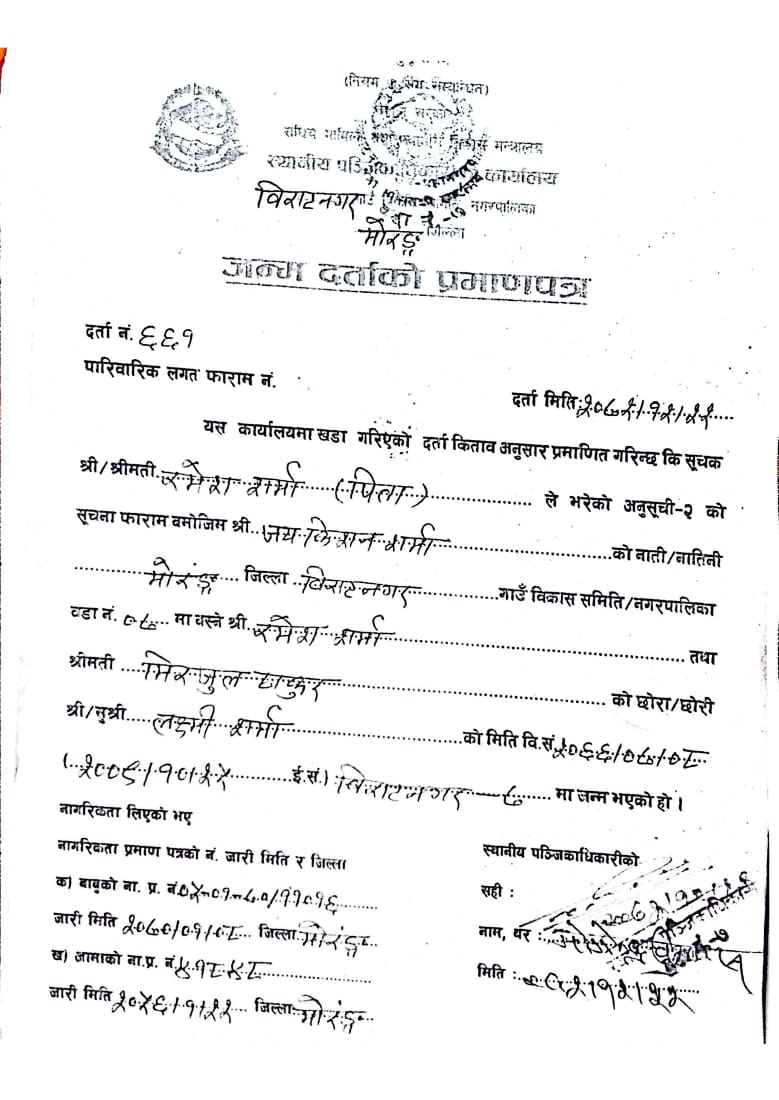 (नियम
स्थानीय पञ्जिकाधिकारीको कार्यालय
विराटनगर नगरपालिका
मोरङ्ग जिल्ला
जन्म दर्ताको प्रमाणपत्र
दर्ता नं. ६६१
पारिवारिक लगत फाराम नं.
दर्ता मिति: २०७२।१२।२२
यस कार्यालयमा खडा गरिएको दर्ता किताव अनुसार प्रमाणित गरिन्छ कि सूचक
श्री/श्रीमती रमेश शर्मा (पिता) ले भरेको अनुसूची-२ को
सूचना फाराम बमोजिम श्री जय किशन शर्मा को नाती/नातिनी
मोरंङ्ग जिल्ला विराटनगर गाउँ विकास समिति/नगरपालिका
वडा नं. ०७ मा वस्ने श्री रमेश शर्मा तथा
श्रीमती मिरजुल ठाकुर को छोरा/छोरी
श्री/सुश्री लक्ष्मी शर्मा को मिति वि.सं. २०६६।०७।०८
(२००९।१०।२५ ई.सं.) विराटनगर-७ मा जन्म भएको हो ।
नागरिकता लिएको भए
नागरिकता प्रमाण पत्रको नं. जारी मिति र जिल्ला
स्थानीय पञ्जिकाधिकारीको
क) बाबुको ना. प्र. नं. ०५-०१-७०/११०१६
सही :
जारी मिति २०७०/०१/०८ जिल्ला मोरंङ्ग
नाम, थर :
ख) आमाको ना.प्र. नं ४१८४८
मिति :
जारी मिति २०५६/१/२२ जिल्ला: मोरंङ्ग